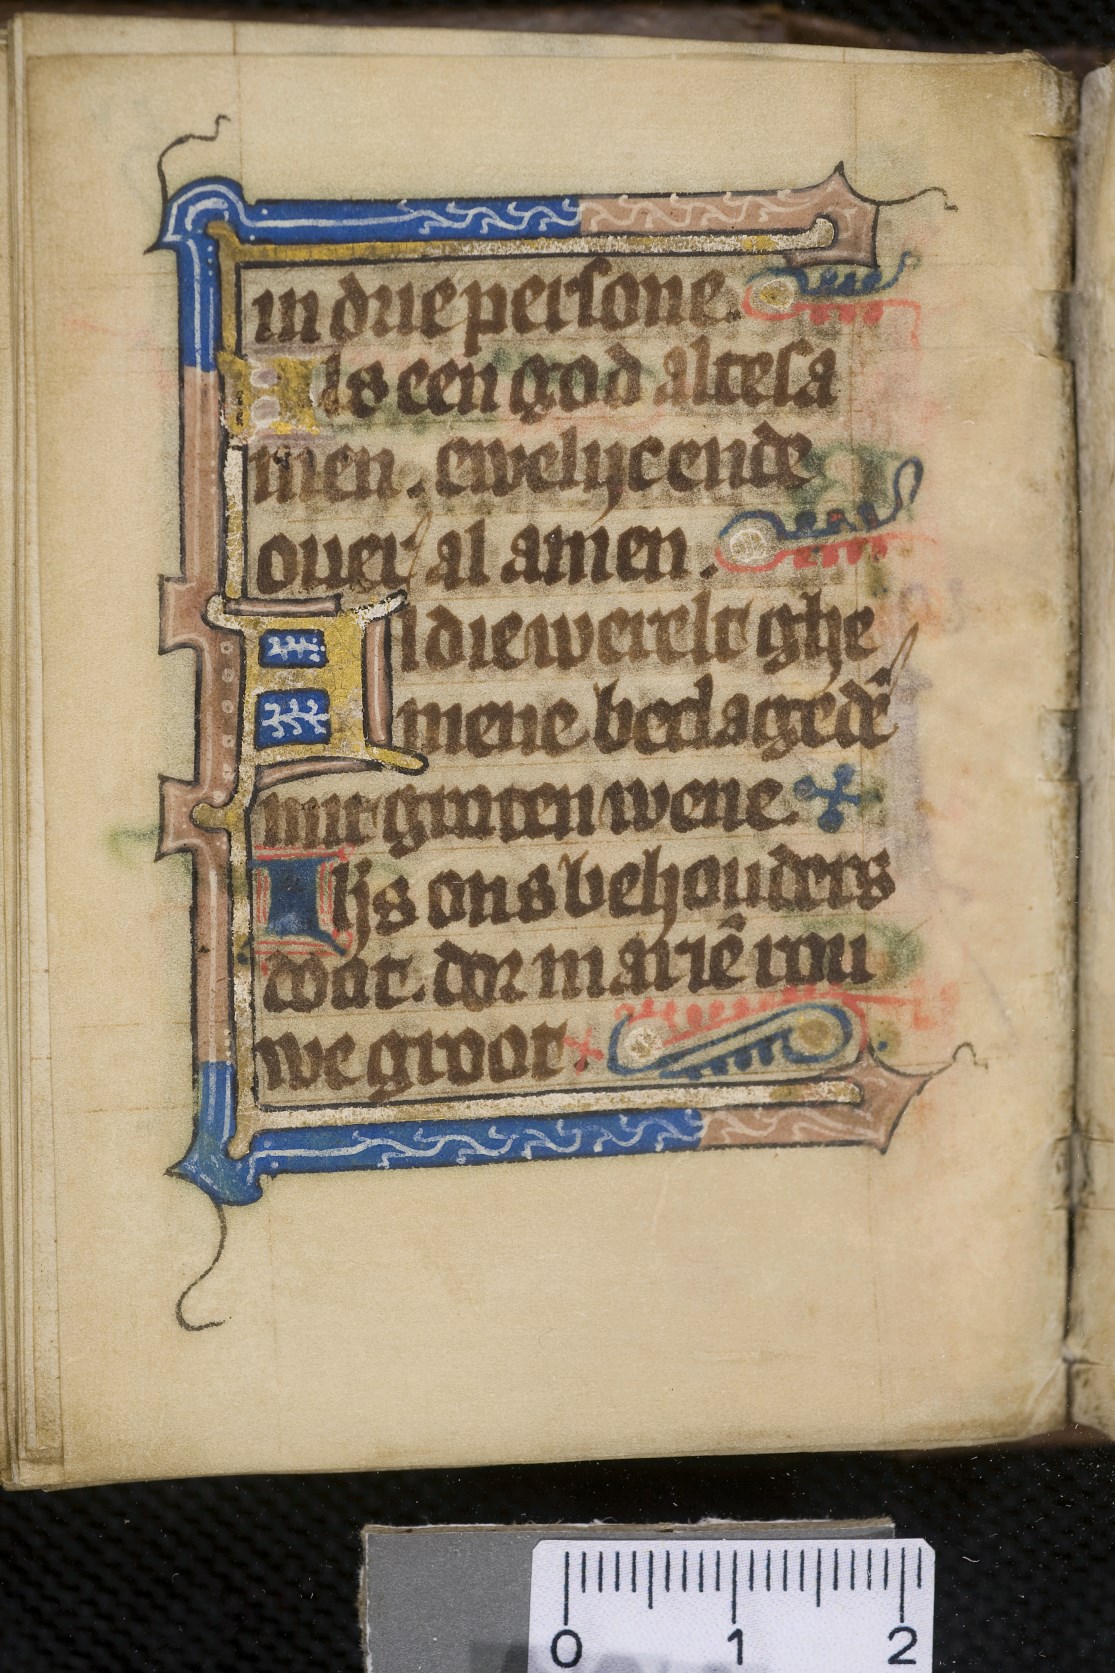 in drie persone.
Als een god altesa
men. ewelijc ende
ouer al amen.
Al die werelt ghe
mene beclagede
mit groten wene
Ihs ons behouders
doot. dor mariē rou
we groot.
0 1 2